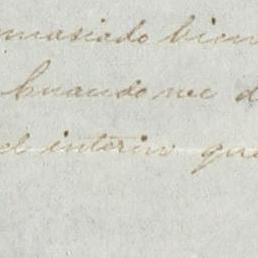 masiado bien
Cuando me d
el interin que